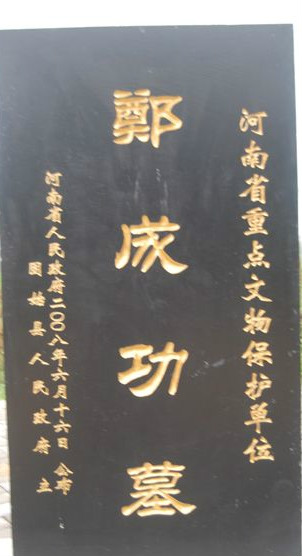 河南省重点文物保护单位
鄭成功墓
河南省人民政府二〇〇八年六月十六日 公布
固始县人民政府 立